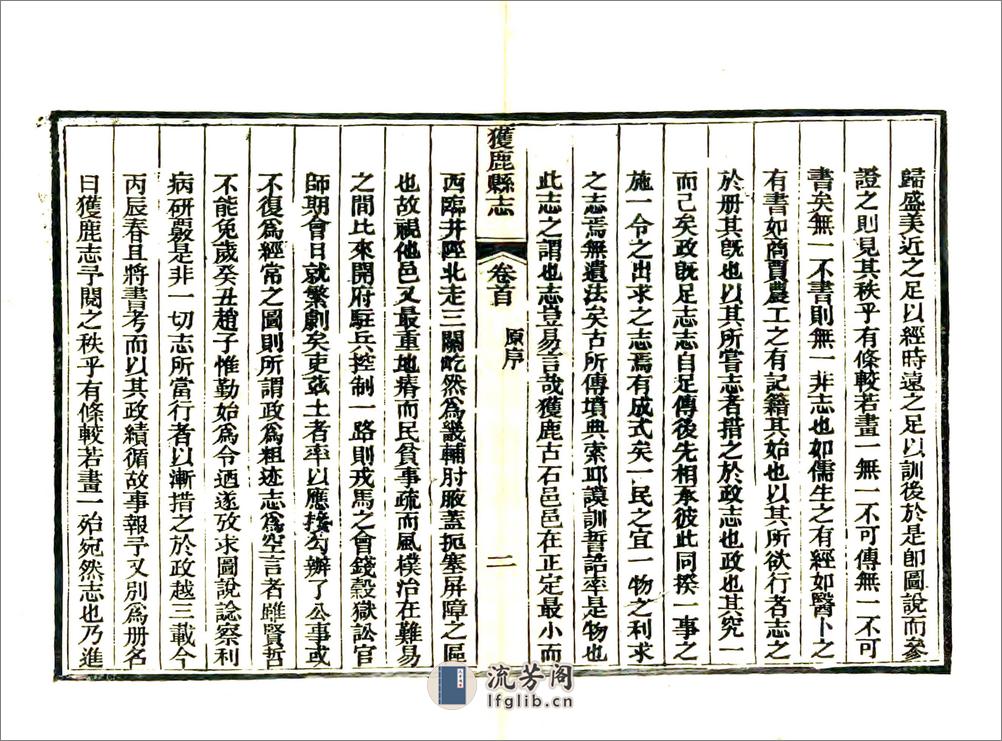 歸盛美近之足以經時遠之足以訓後於是卽圖說而參
證之則見其秩乎有條較若畫一無一不可傳無一不可
書矣無一不書則無一非志也如儒生之有經如醫卜之
有書如商賈農工之有記籍其始也以其所欲行者志之
於册其旣也以其所嘗志者措之於政志也政也其究一
而已矣政旣足志志自足傳後先相承彼此同揆一事之
施一令之出求之志焉有成式矣一民之宜一物之利求
之志焉無遺法矣古所傳墳典索邱謨訓誓誥率是物也
此志之謂也志豈易言哉獲鹿古石邑邑在正定最小而
獲鹿縣志
卷首
原序
二
西臨井陘北走三關屹然爲畿輔肘腋蓋扼塞屏障之區
也故視他邑又最重地瘠而民貧事疏而風樸治在難易
之間比來開府駐兵控制一路則戎馬之會錢穀獄訟官
師期會日就繁劇矣吏兹土者率以應接勾辦了公事或
不復爲經常之圖則所謂政爲粗迹志爲空言者雖賢哲
不能免歲癸丑趙子惟勤始爲令迺遂攷求圖說諗察利
病研覈是非一切志所當行者以漸措之於政越三載今
丙辰春且將書考而以其政績循故事報予又別爲册名
曰獲鹿志予閱之秩乎有條較若畫一殆宛然志也乃進
流芳阁
lfglib.cn